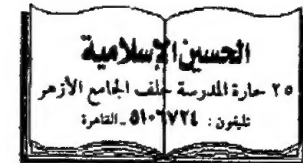 الحسين الإسلامية
٢٥ حارة المدرسة خلف الجامع الأزهر
تليفون : ٥١٠٦٧٢٤ ـ القاهرة